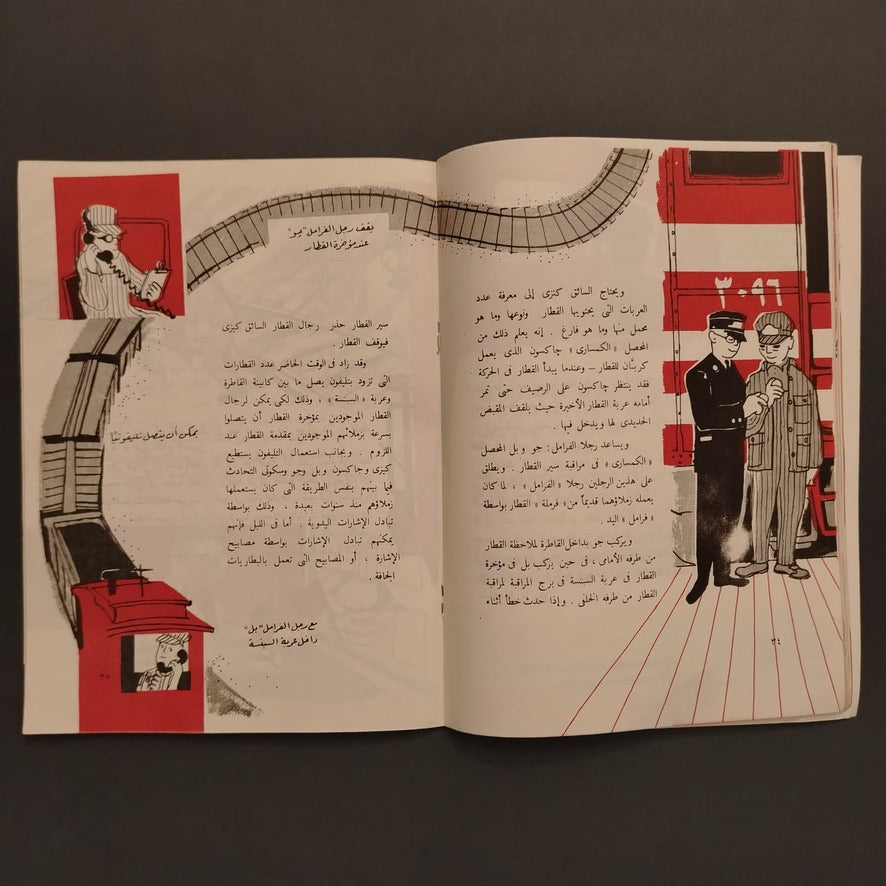 ٣٠٩٦
ويحتاج السائق كنزى إلى معرفة عدد
العربات التى يحتويها القطار ونوعها وما هو
محمل منها وما هو فارغ . إنه يعلم ذلك من
المحصل « الكمسارى » چاكسون الذى يعمل
كربان للقطار – وعندما يبدأ القطار فى الحركة
فقد ينتظر چاكسون على الرصيف حتى تمر
أمامه عربة القطار الأخيرة حيث يلقف المقبض
الحديدى لها ويدخل فيها .
ويساعد رجلا الفرامل : جو وبل المحصل
« الكمسارى » فى مراقبة سير القطار . ويطلق
على هذين الرجلين رجلا « الفرامل » ، لما كان
يعمله زملاؤهما قديماً من « فرملة » القطار بواسطة
« فرامل » اليد .
ويركب جو بداخل القاطرة لملاحظة القطار
من طرفه الأمامى ، فى حين يركب بل فى مؤخرة
القطار فى عربة السبنسة فى برج المراقبة لمراقبة
القطار من طرفه الخلفى . وإذا حدث خطأ أثناء
٣٤
يقف رجل الفرامل "جو"
عند مؤخرة القطار
سير القطار حذر رجال القطار السائق كيزى
فيوقف القطار .
وقد زاد فى الوقت الحاضر عدد القطارات
التى تزود بتليفون يصل ما بين كابينة القاطرة
وعربة « السبنسة » ، وذلك لكى يمكن لرجال
القطار الموجودين بمؤخرة القطار أن يتصلوا
بسرعة بزملائهم الموجودين بمقدمة القطار عند
اللزوم . وبجانب استعمال التليفون يستطيع
كيزى وجاكسون وبل وجو وسكوتى التحادث
فيما بينهم بنفس الطريقة التى كان يستعملها
زملاؤهم منذ سنوات بعيدة ، وذلك بواسطة
تبادل الإشارات اليدوية . أما فى الليل فإنهم
يمكنهم تبادل الإشارات بواسطة مصابيح
الإشارة ، أو المصابيح التى تعمل بالبطاريات
الجافة .
يمكن أن يتصل تليفونيًا
مع رجل الفرامل "بل"
داخل عربة السبنسة
٣٥